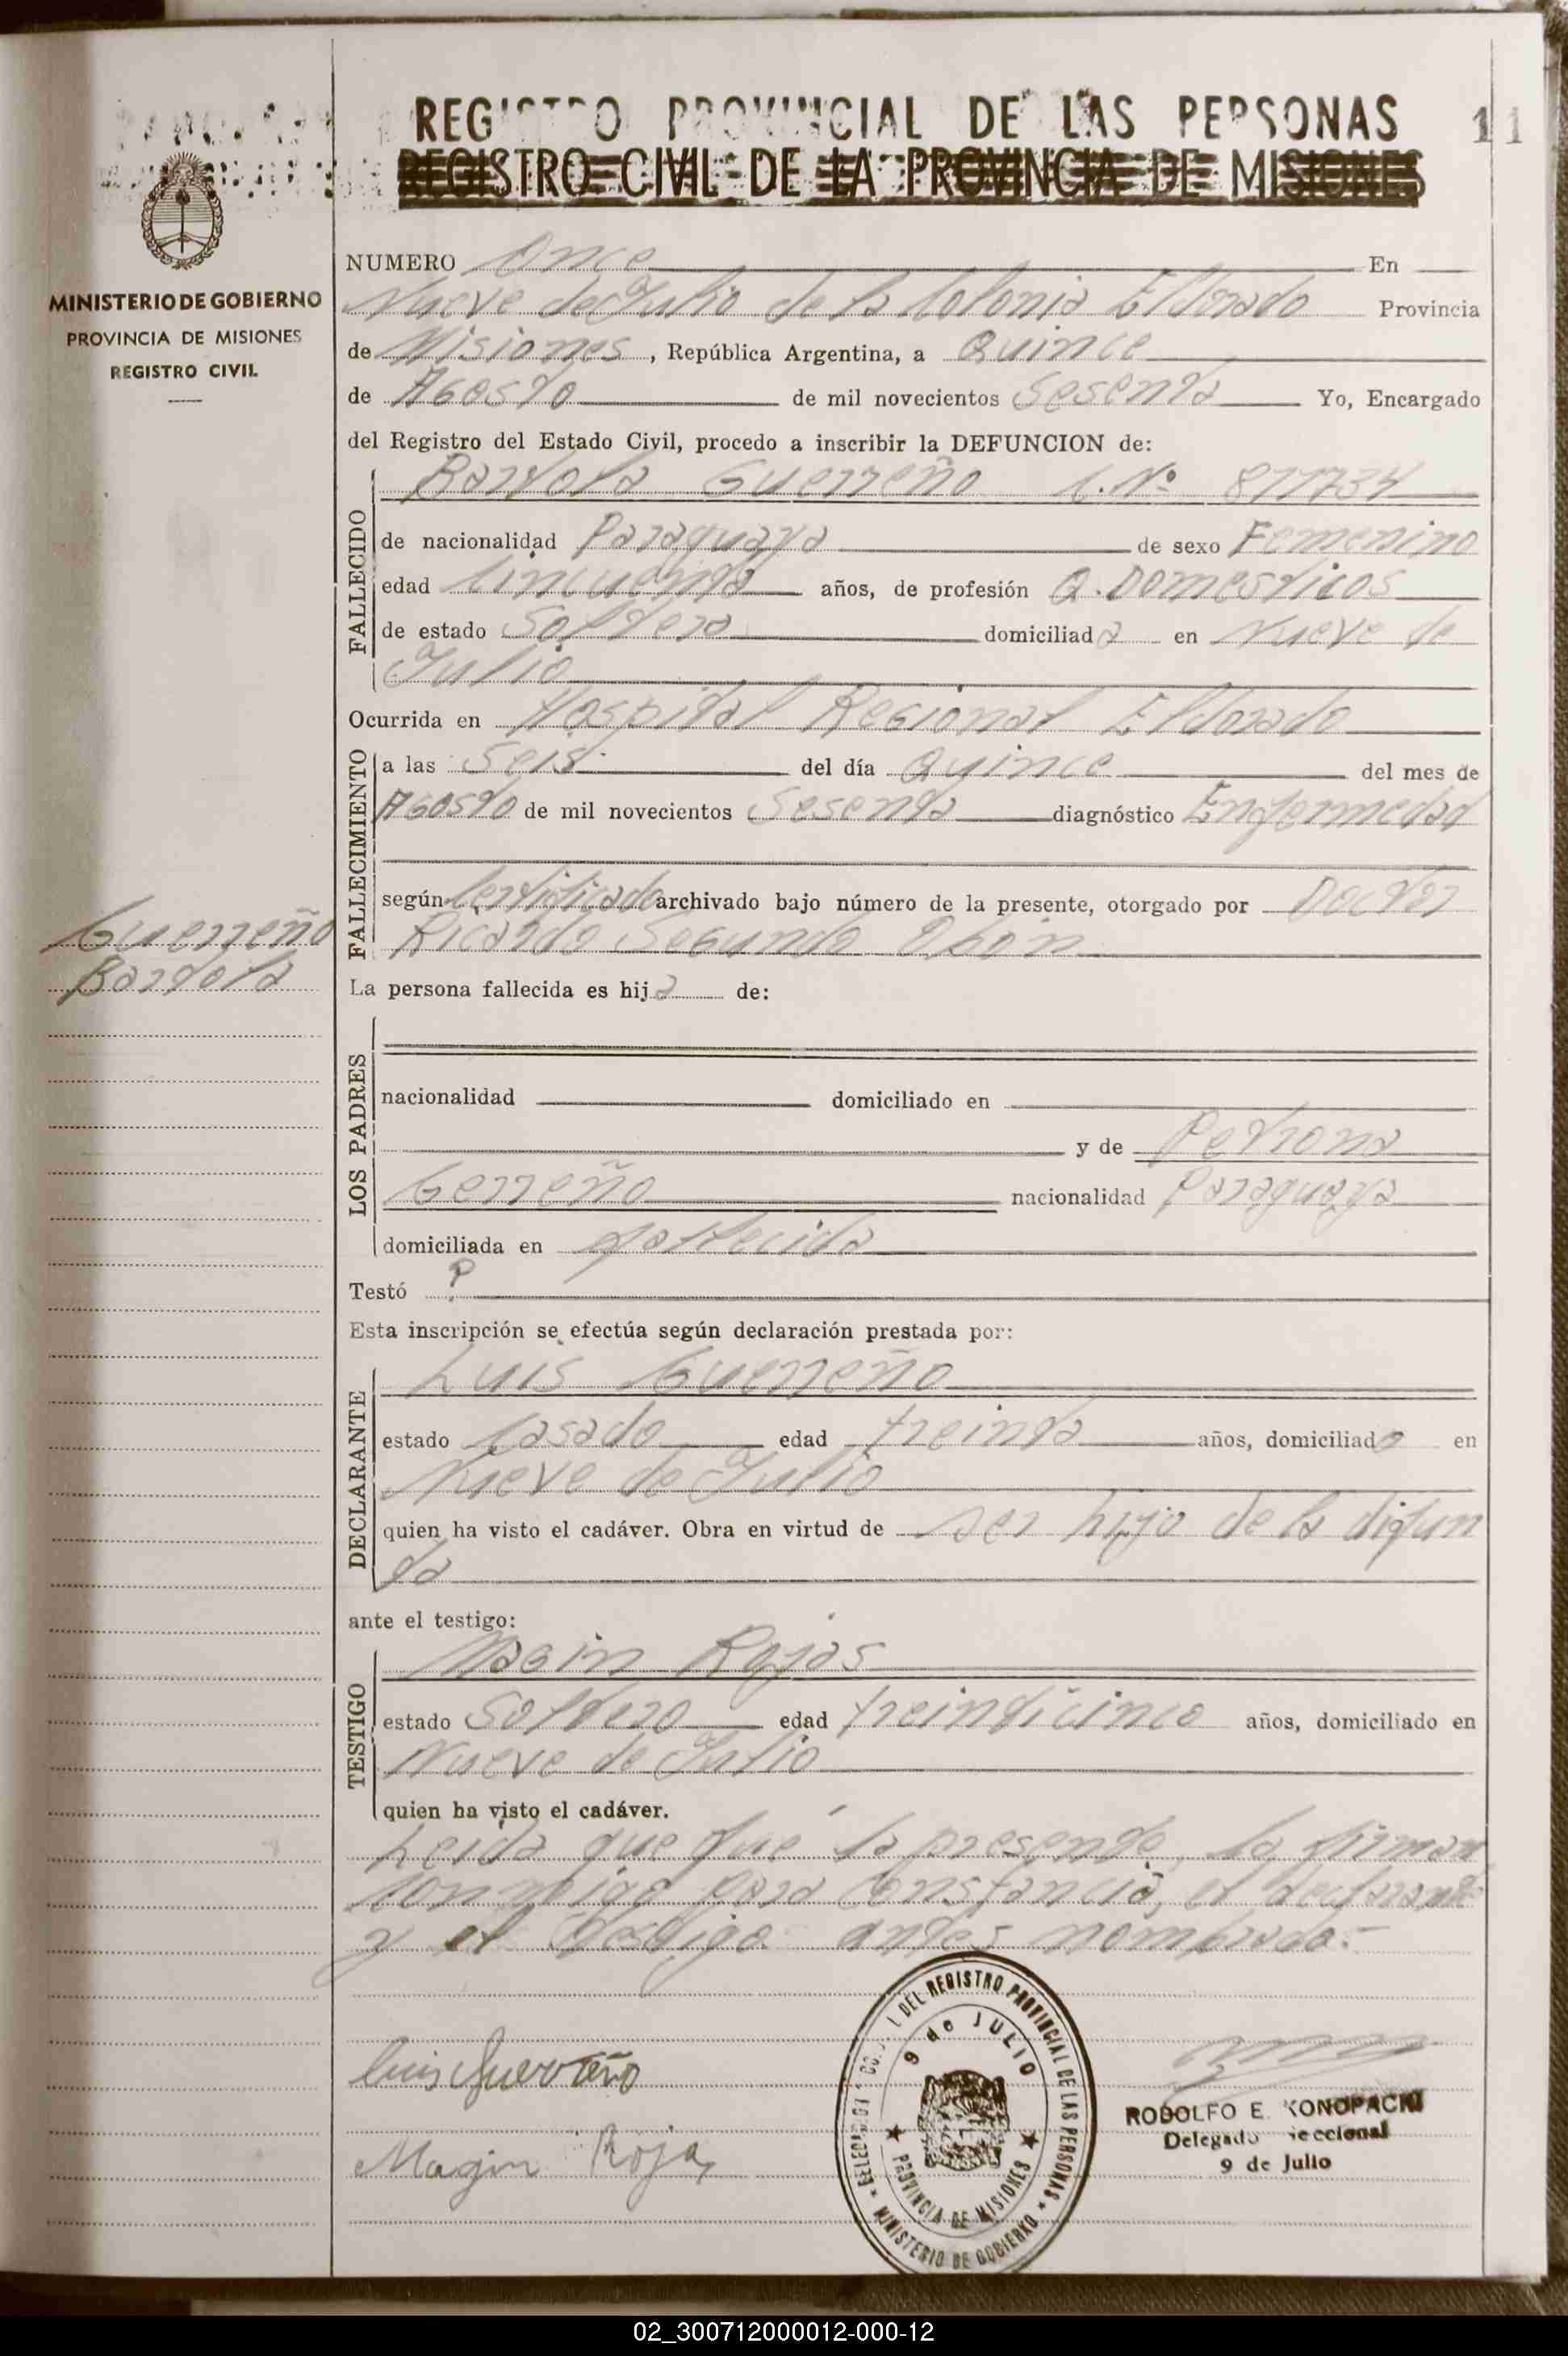 REGISTRO PROVINCIAL DE LAS PERSONAS
11
REGISTRO CIVIL DE LA PROVINCIA DE MISIONES
MINISTERIO DE GOBIERNO
PROVINCIA DE MISIONES
REGISTRO CIVIL
NUMERO Once En
Nueve de Julio de la Colonia Eldorado Provincia
de Misiones, República Argentina, a Quince
de Agosto de mil novecientos Sesenta Yo, Encargado
del Registro del Estado Civil, procedo a inscribir la DEFUNCION de:
FALLECIDO
Bartola Guerreño C. Nº 877734
de nacionalidad Paraguaya de sexo Femenino
edad Cincuenta años, de profesión Q. Domesticos
de estado Soltera domiciliada en Nueve de
Julio
Ocurrida en Hospital Regional Eldorado
FALLECIMIENTO
a las Seis del día Quince del mes de
Agosto de mil novecientos Sesenta diagnóstico Enfermedad
según Certificado archivado bajo número de la presente, otorgado por Doctor
Ricardo Segundo Obon
Guerreño
Bartola
La persona fallecida es hija de:
LOS PADRES
nacionalidad domiciliado en
y de Petrona
Gerreño nacionalidad Paraguaya
domiciliada en fallecida
Testó ?
Esta inscripción se efectúa según declaración prestada por:
DECLARANTE
Luis Guerreño
estado Casado edad treinta años, domiciliado en
Nueve de Julio
quien ha visto el cadáver. Obra en virtud de ser hijo de la difun
ta
ante el testigo:
TESTIGO
Magin Rojas
estado Soltero edad treinticinco años, domiciliado en
Nueve de Julio
quien ha visto el cadáver.
Leida que fue la presente, la firman
conmigo para Constancia, el declarante
y el testigo antes nombrado.-
Luis Guerreño
Magin Rojas
DEL REGISTRO PROVINCIAL DE LAS PERSONAS
9 de JULIO
PROVINCIA DE MISIONES
MINISTERIO DE GOBIERNO
RODOLFO E. KONOPACKI
Delegado Seccional
9 de Julio
02_300712000012-000-12